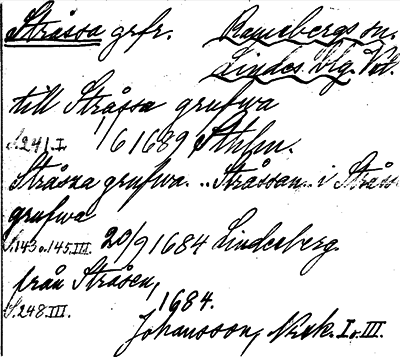 Stråssa grfr. Ramsbergs sn.
Lindes blg. Vstl.
till Stråssa grufwa
S.241.I. 1/6 1689 Sthlm.
Stråssa grufwa. "Stråssan" i Stråss
grufwa
S.143 o. 145.III. 20/9 1684 Lindesberg.
från Stråsen,
S.248.III. 1684.
Johansson, Norak. I o. III.